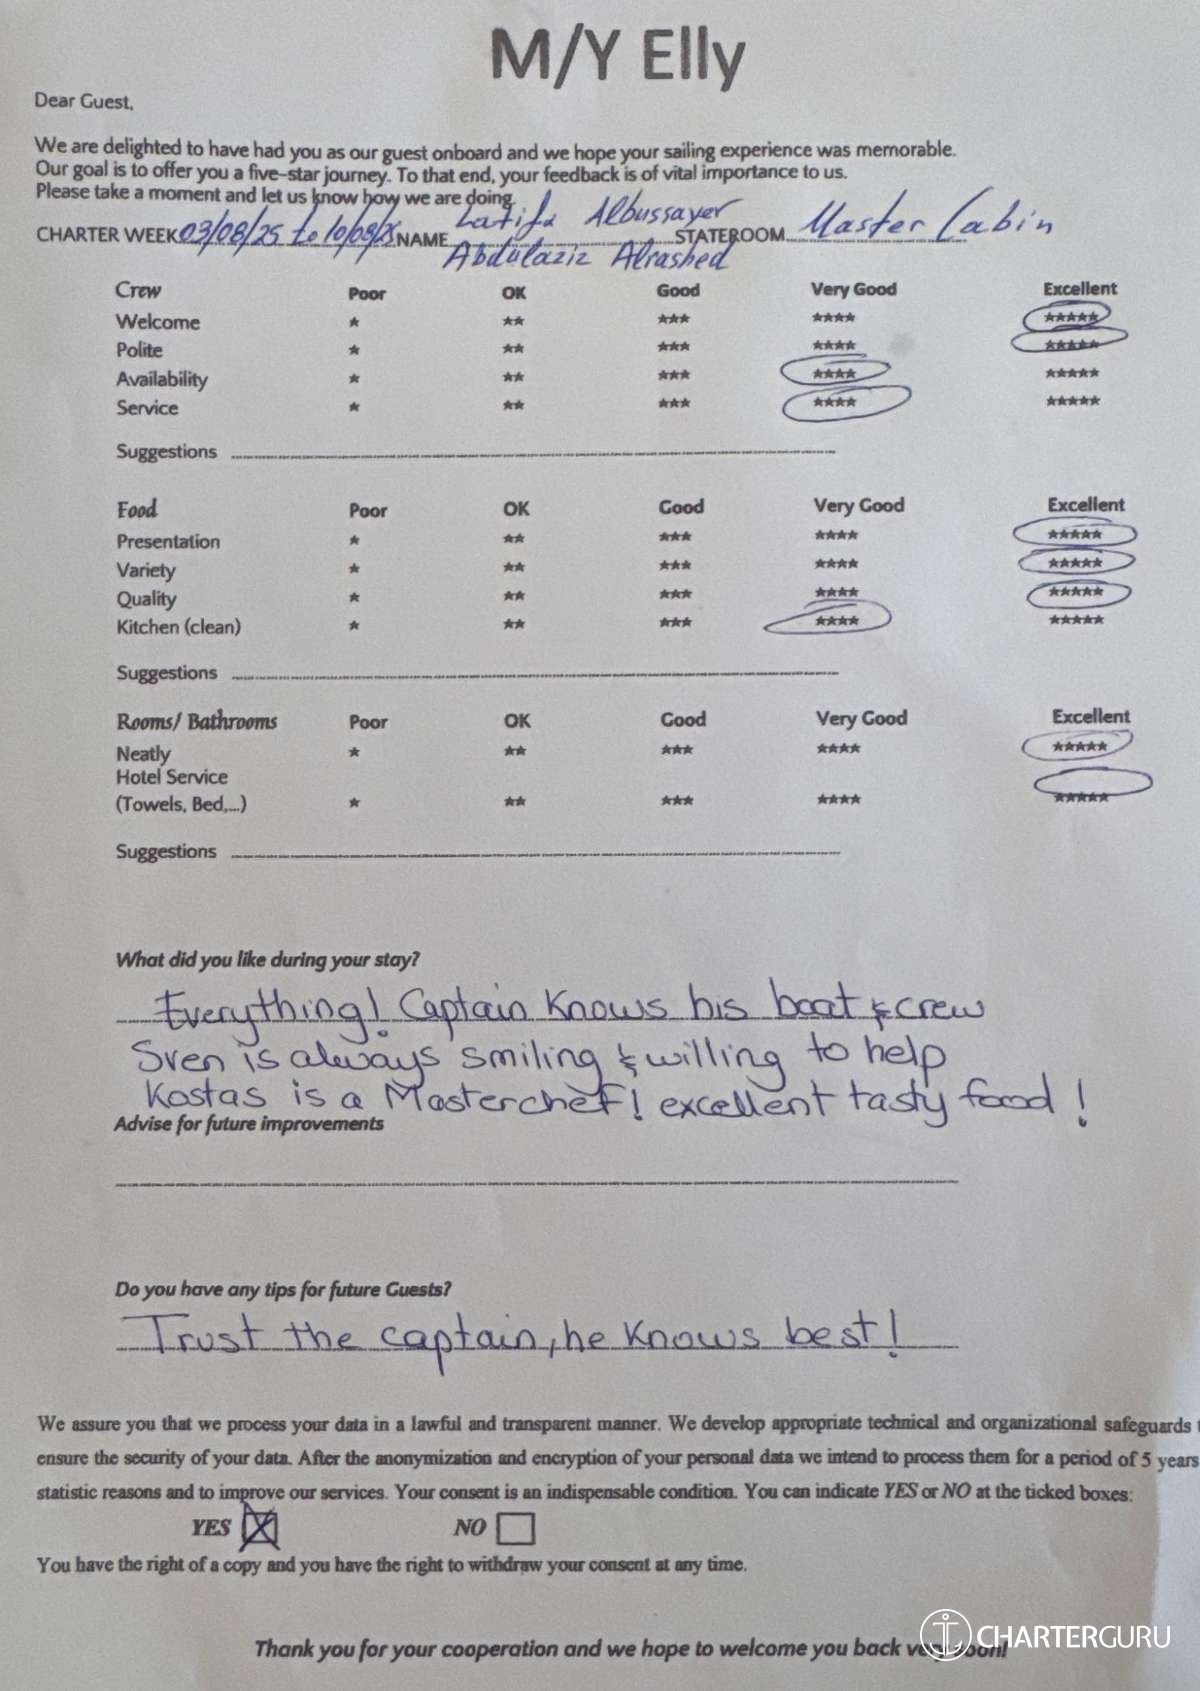 M/Y Elly
Dear Guest,
We are delighted to have had you as our guest onboard and we hope your sailing experience was memorable.
Our goal is to offer you a five-star journey. To that end, your feedback is of vital importance to us.
Please take a moment and let us know how we are doing.
CHARTER WEEK 03/08/25 to 10/08/25 NAME Latifa Albussayer STATEROOM Master Cabin
Abdulaziz Alrashed
Crew Poor OK Good Very Good Excellent
Welcome ★ ★★ ★★★ ★★★★ ★★★★★
Polite ★ ★★ ★★★ ★★★★ ★★★★★
Availability ★ ★★ ★★★ ★★★★ ★★★★★
Service ★ ★★ ★★★ ★★★★ ★★★★★
Suggestions
Food Poor OK Good Very Good Excellent
Presentation ★ ★★ ★★★ ★★★★ ★★★★★
Variety ★ ★★ ★★★ ★★★★ ★★★★★
Quality ★ ★★ ★★★ ★★★★ ★★★★★
Kitchen (clean) ★ ★★ ★★★ ★★★★ ★★★★★
Suggestions
Rooms/ Bathrooms Poor OK Good Very Good Excellent
Neatly ★ ★★ ★★★ ★★★★ ★★★★★
Hotel Service
(Towels, Bed,...) ★ ★★ ★★★ ★★★★ ★★★★★
Suggestions
What did you like during your stay?
Everything! Captain knows his boat & crew
Sven is always smiling & willing to help
Kostas is a Masterchef! excellent tasty food!
Advise for future improvements
Do you have any tips for future Guests?
Trust the captain, he knows best!
We assure you that we process your data in a lawful and transparent manner. We develop appropriate technical and organizational safeguards
ensure the security of your data. After the anonymization and encryption of your personal data we intend to process them for a period of 5 years
statistic reasons and to improve our services. Your consent is an indispensable condition. You can indicate YES or NO at the ticked boxes:
YES NO
You have the right of a copy and you have the right to withdraw your consent at any time.
Thank you for your cooperation and we hope to welcome you back very soon!
CHARTERGURU